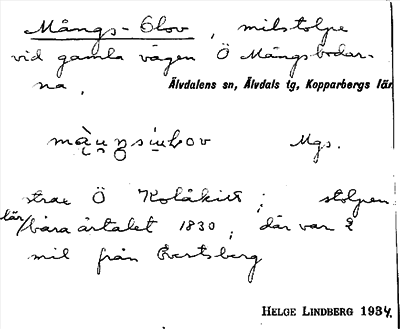 Mångs-Olov, milstolpe
vid gamla vägen Ö Mångsbodar-
na,
Älvdalens sn, Älvdals tg, Kopparbergs län
Mgs.
strax Ö Kolåkitt; stolpen
lär bära årtalet 1830; där var 2
mil från Evertsberg
HELGE LINDBERG 1934.